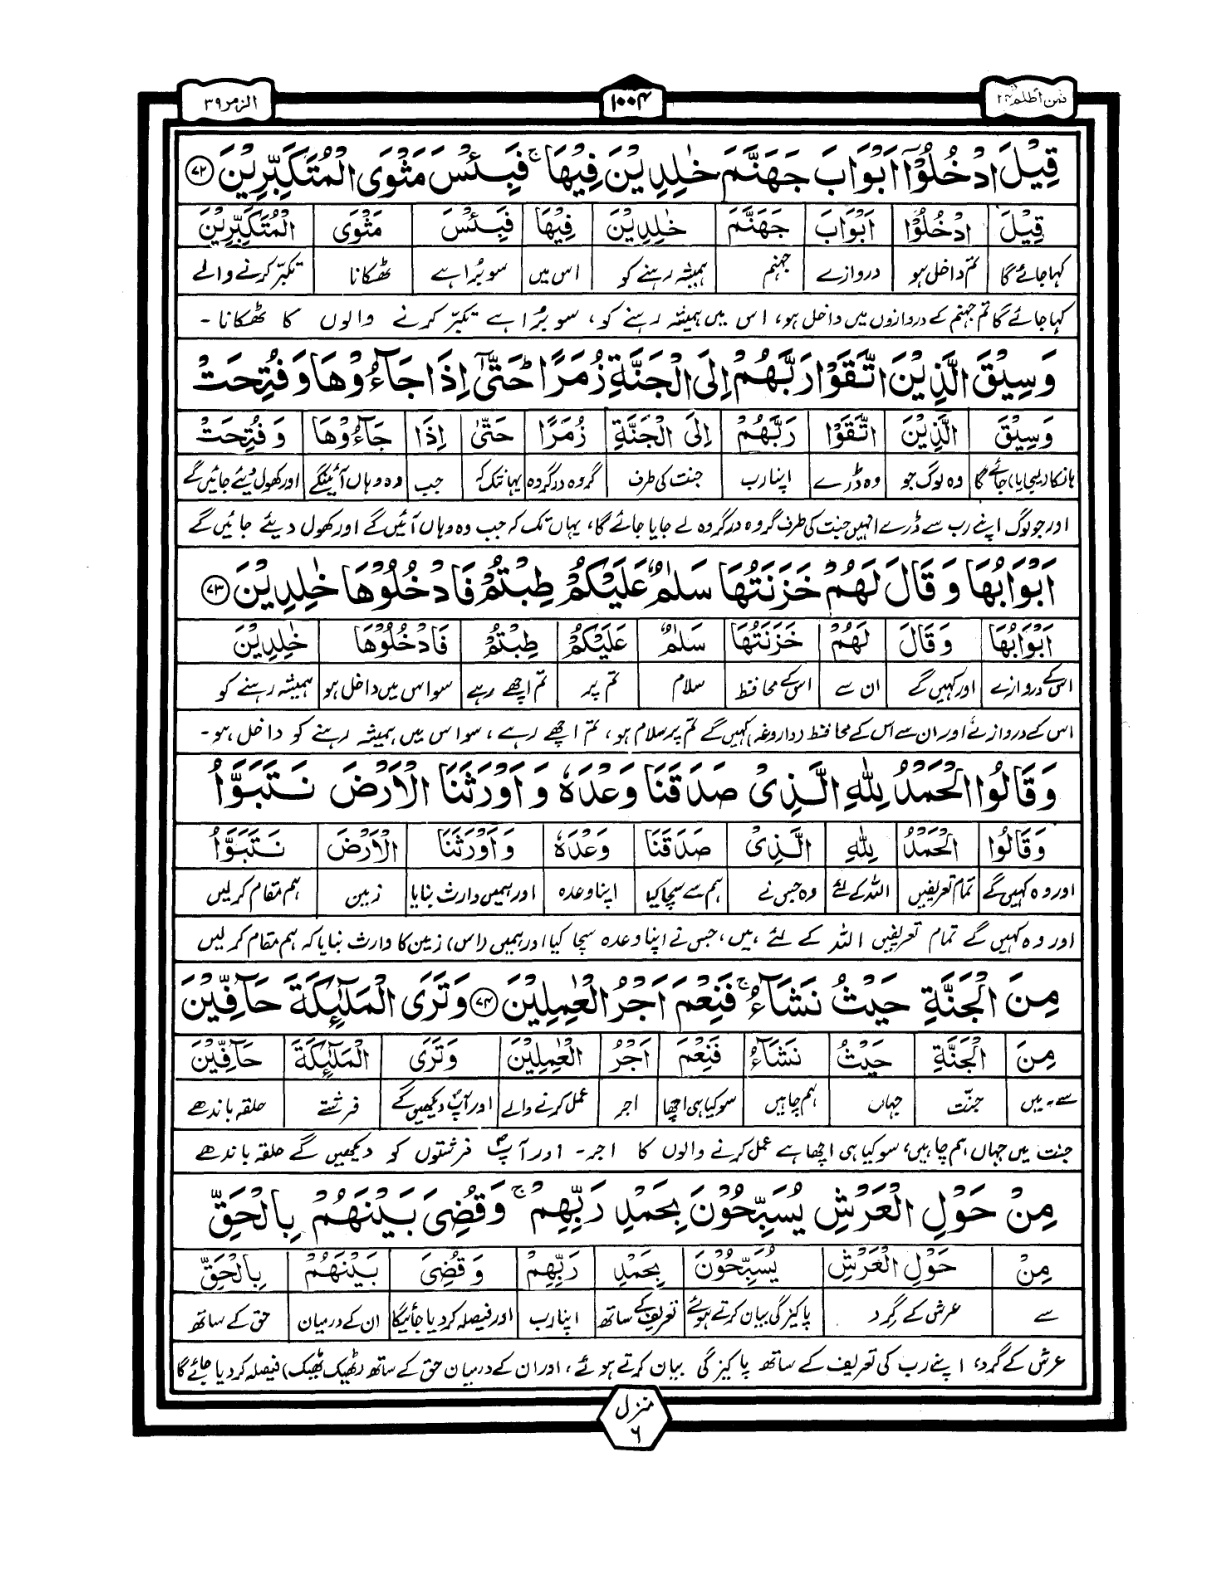 فمن اظلم ۲۴
۱۰۰۴
الزمر ۳۹
قِيْلَ ادْخُلُوْۤا اَبْوَابَ جَهَنَّمَ خٰلِدِيْنَ فِيْهَا ۚ فَبِئْسَ مَثْوَى الْمُتَكَبِّرِيْنَ ۷۲
قِيْلَ ادْخُلُوْۤا اَبْوَابَ جَهَنَّمَ خٰلِدِيْنَ فِيْهَا فَبِئْسَ مَثْوَى الْمُتَكَبِّرِيْنَ
کہا جائے گا تم داخل ہو دروازے جہنم ہمیشہ رہنے کو اس میں سو بُرا ہے ٹھکانا تکبّر کرنے والے
کہا جائے گا تم جہنم کے دروازوں میں داخل ہو، اس میں ہمیشہ رہنے کو، سو بُرا ہے تکبّر کرنے والوں کا ٹھکانا -
وَسِيْقَ الَّذِيْنَ اتَّقَوْا رَبَّهُمْ اِلَى الْجَنَّةِ زُمَرًا ؕ حَتّٰۤى اِذَا جَآءُوْهَا وَفُتِحَتْ
وَسِيْقَ الَّذِيْنَ اتَّقَوْا رَبَّهُمْ اِلَى الْجَنَّةِ زُمَرًا حَتّٰۤى اِذَا جَآءُوْهَا وَفُتِحَتْ
ہانکا (لیجایا) جائے گا وہ لوگ جو وہ ڈرے اپنا رب جنت کی طرف گروہ در گروہ یہانتک کہ جب وہ وہاں آئینگے اور کھول دیئے جائیں گے
اور جو لوگ اپنے رب سے ڈرے انہیں جنت کی طرف گروہ در گروہ لے جایا جائے گا، یہاں تک کہ جب وہ وہاں آئیں گے اور کھول دیئے جائیں گے
اَبْوَابُهَا وَقَالَ لَهُمْ خَزَنَتُهَا سَلٰمٌ عَلَيْكُمْ طِبْتُمْ فَادْخُلُوْهَا خٰلِدِيْنَ ۷۳
اَبْوَابُهَا وَقَالَ لَهُمْ خَزَنَتُهَا سَلٰمٌ عَلَيْكُمْ طِبْتُمْ فَادْخُلُوْهَا خٰلِدِيْنَ
اس کے دروازے اور کہیں گے ان سے اس کے محافظ سلام تم پر تم اچھے رہے سو اس میں داخل ہو ہمیشہ رہنے کو
اس کے دروازے اور ان سے اس کے محافظ (داروغہ) کہیں گے تم پر سلام ہو، تم اچھے رہے، سو اس میں ہمیشہ رہنے کو داخل ہو -
وَقَالُوا الْحَمْدُ لِلّٰهِ الَّذِيْ صَدَقَنَا وَعْدَهٗ وَاَوْرَثَنَا الْاَرْضَ نَتَبَوَّاُ
وَقَالُوا الْحَمْدُ لِلّٰهِ الَّذِيْ صَدَقَنَا وَعْدَهٗ وَاَوْرَثَنَا الْاَرْضَ نَتَبَوَّاُ
اور وہ کہیں گے تمام تعریفیں اللہ کے لئے وہ جس نے ہم سے سچا کیا اپنا وعدہ اور ہمیں وارث بنایا زمین ہم مقام کرلیں
اور وہ کہیں گے تمام تعریفیں اللہ کے لئے ہیں، جس نے اپنا وعدہ سچا کیا اور ہمیں (اس) زمین کا وارث بنایا کہ ہم مقام کرلیں
مِنَ الْجَنَّةِ حَيْثُ نَشَآءُ ۚ فَنِعْمَ اَجْرُ الْعٰمِلِيْنَ ۷۴ وَتَرَى الْمَلٰٓئِكَةَ حَآفِّيْنَ
مِنَ الْجَنَّةِ حَيْثُ نَشَآءُ فَنِعْمَ اَجْرُ الْعٰمِلِيْنَ وَتَرَى الْمَلٰٓئِكَةَ حَآفِّيْنَ
سے - میں جنّت جہاں ہم چاہیں سو کیا ہی اچھا اجر عمل کرنے والے اور آپؐ دیکھیں گے فرشتے حلقہ باندھے
جنت میں جہاں ہم چاہیں، سو کیا ہی اچھا ہے عمل کرنے والوں کا اجر - اور آپؐ فرشتوں کو دیکھیں گے حلقہ باندھے
مِنْ حَوْلِ الْعَرْشِ يُسَبِّحُوْنَ بِحَمْدِ رَبِّهِمْ ۚ وَقُضِيَ بَيْنَهُمْ بِالْحَقِّ
مِنْ حَوْلِ الْعَرْشِ يُسَبِّحُوْنَ بِحَمْدِ رَبِّهِمْ وَقُضِيَ بَيْنَهُمْ بِالْحَقِّ
سے عرش کے گرد پاکیزگی بیان کرتے ہوئے تعریف کے ساتھ اپنا رب اور فیصلہ کردیا جائیگا ان کے درمیان حق کے ساتھ
عرش کے گرد، اپنے رب کی تعریف کے ساتھ پاکیزگی بیان کرتے ہوئے، اور ان کے درمیان حق کے ساتھ (ٹھیک ٹھیک) فیصلہ کردیا جائے گا
منزل
۶